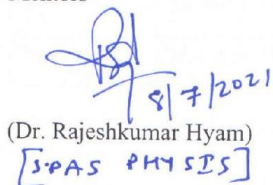 8/7/2021
(Dr. Rajeshkumar Hyam)
[S.PAS PHYSICS]